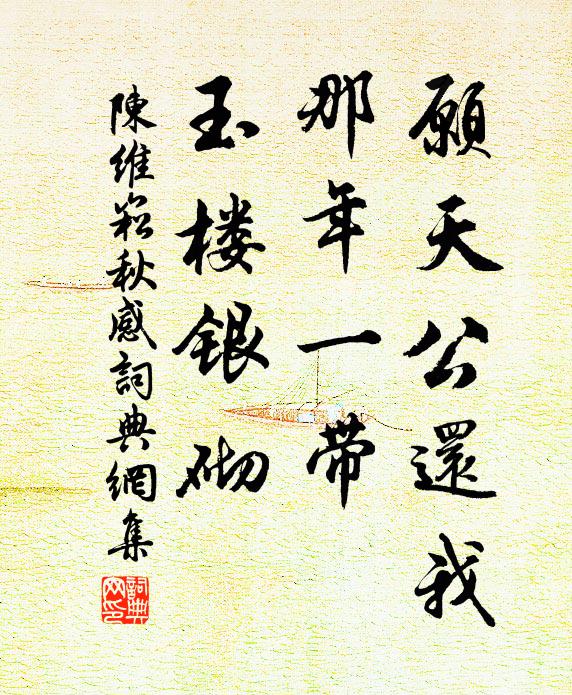 願天公還我
那年一带
玉楼銀砌
陳維崧秋感詞典網集
詞典網印